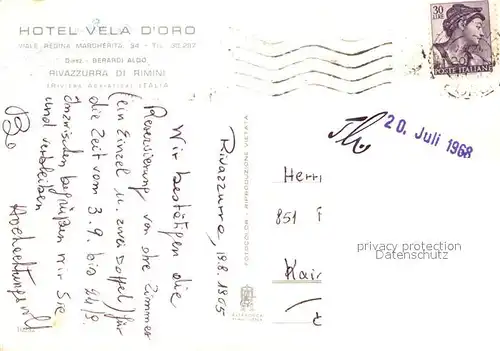 HOTEL VELA D'ORO
VIALE REGINA MARGHERITA, 94 - TEL. 30.297
Direz. BERARDI ALDO
RIVAZZURRA DI RIMINI
(RIVIERA ADRIATICA) ITALIA
30
LIRE
POSTE ITALIANE
20. Juli 1968
Rivazzurra, 19.8.1965
Wir bestätigen die
Reservierung von drei Zimmer
(ein Einzel u. zwei Doppel) für
die Zeit vom 3.9. bis 24/9.
Inzwischen begrüßen wir Sie
und verbleiben
Hochachtungsvoll
FOTOCOLOR - RIPRODUZIONE VIETATA
Herrn
851
privacy protection
Datenschutz